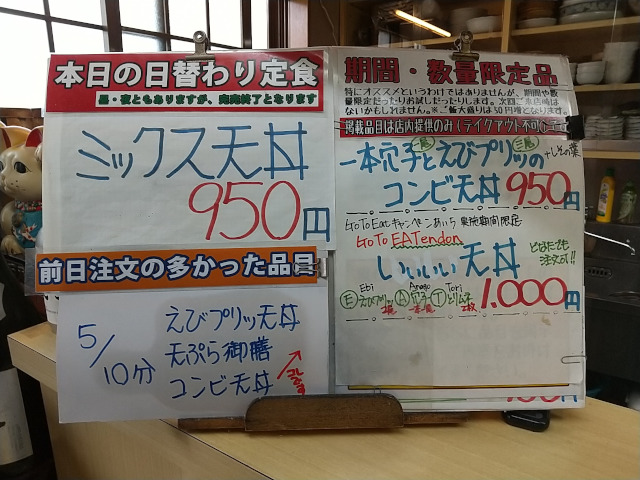 本日の日替わり定食
昼・夜ともありますが、完売終了となります
ミックス天丼
950円
前日注文の多かった品目
5/10分
えびプリッ天丼
天ぷら御膳
コンビ天丼
期間・数量限定品
特にオススメというわけではありませんが、期間や数
量限定だったりお試しだったりします。次回ご来店時は
ないかもしれません。※ご飯大盛りは50円増となります。
掲載品目は店内提供のみ(テイクアウト不可)
一尾 三尾
一本穴子とえびプリッの
コンビ天丼 950円
GoToEatキャンペーンあいち 実施期間限定
GoTo EATendon
いいいい天丼
1.000円
Ebi Anago Tori
Ⓔえびプリッ Ⓐ穴子 Ⓣとりムネ
2枚